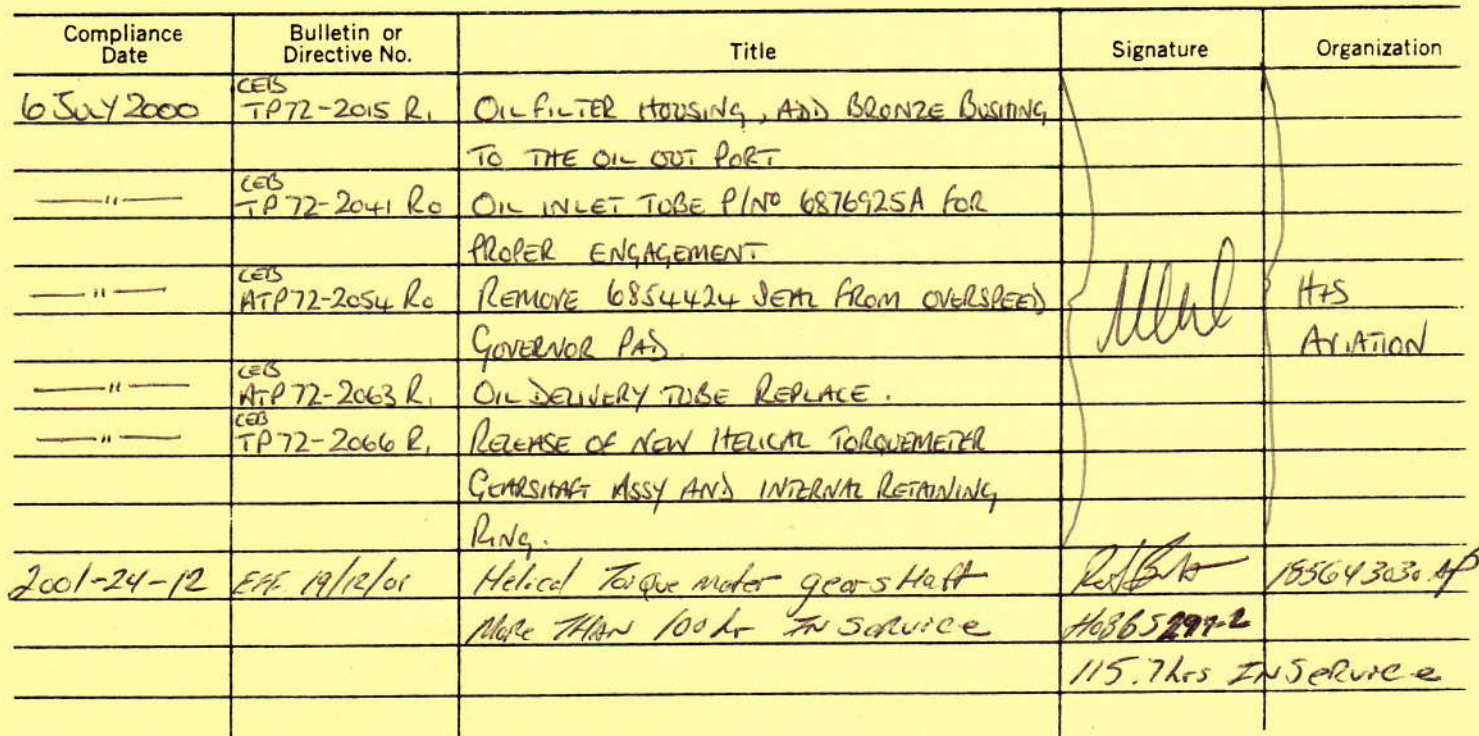 Compliance Date Bulletin or Directive No. Title Signature Organization
CEB
6 JULY 2000 TP72-2015 R1 OIL FILTER HOUSING, ADD BRONZE BUSHING
TO THE OIL OUT PORT
CEB
—"— TP72-2041 R0 OIL INLET TUBE P/Nº 6876925A FOR
PROPER ENGAGEMENT
CEB
—"— ATP72-2054 R0 REMOVE 6854424 SEAL FROM OVERSPEED H+S
GOVERNOR PAD. AVIATION
CEB
—"— ATP72-2063 R1 OIL DELIVERY TUBE REPLACE.
CEB
—"— TP72-2066 R1 RELEASE OF NEW HELICAL TORQUEMETER
GEARSHAFT ASSY AND INTERNAL RETAINING
RING.
2001-24-12 EFF. 19/12/01 Helical Torque meter gearsHaft 185643030 AP
More THAN 100 hr IN Service
115.7 hrs IN Service